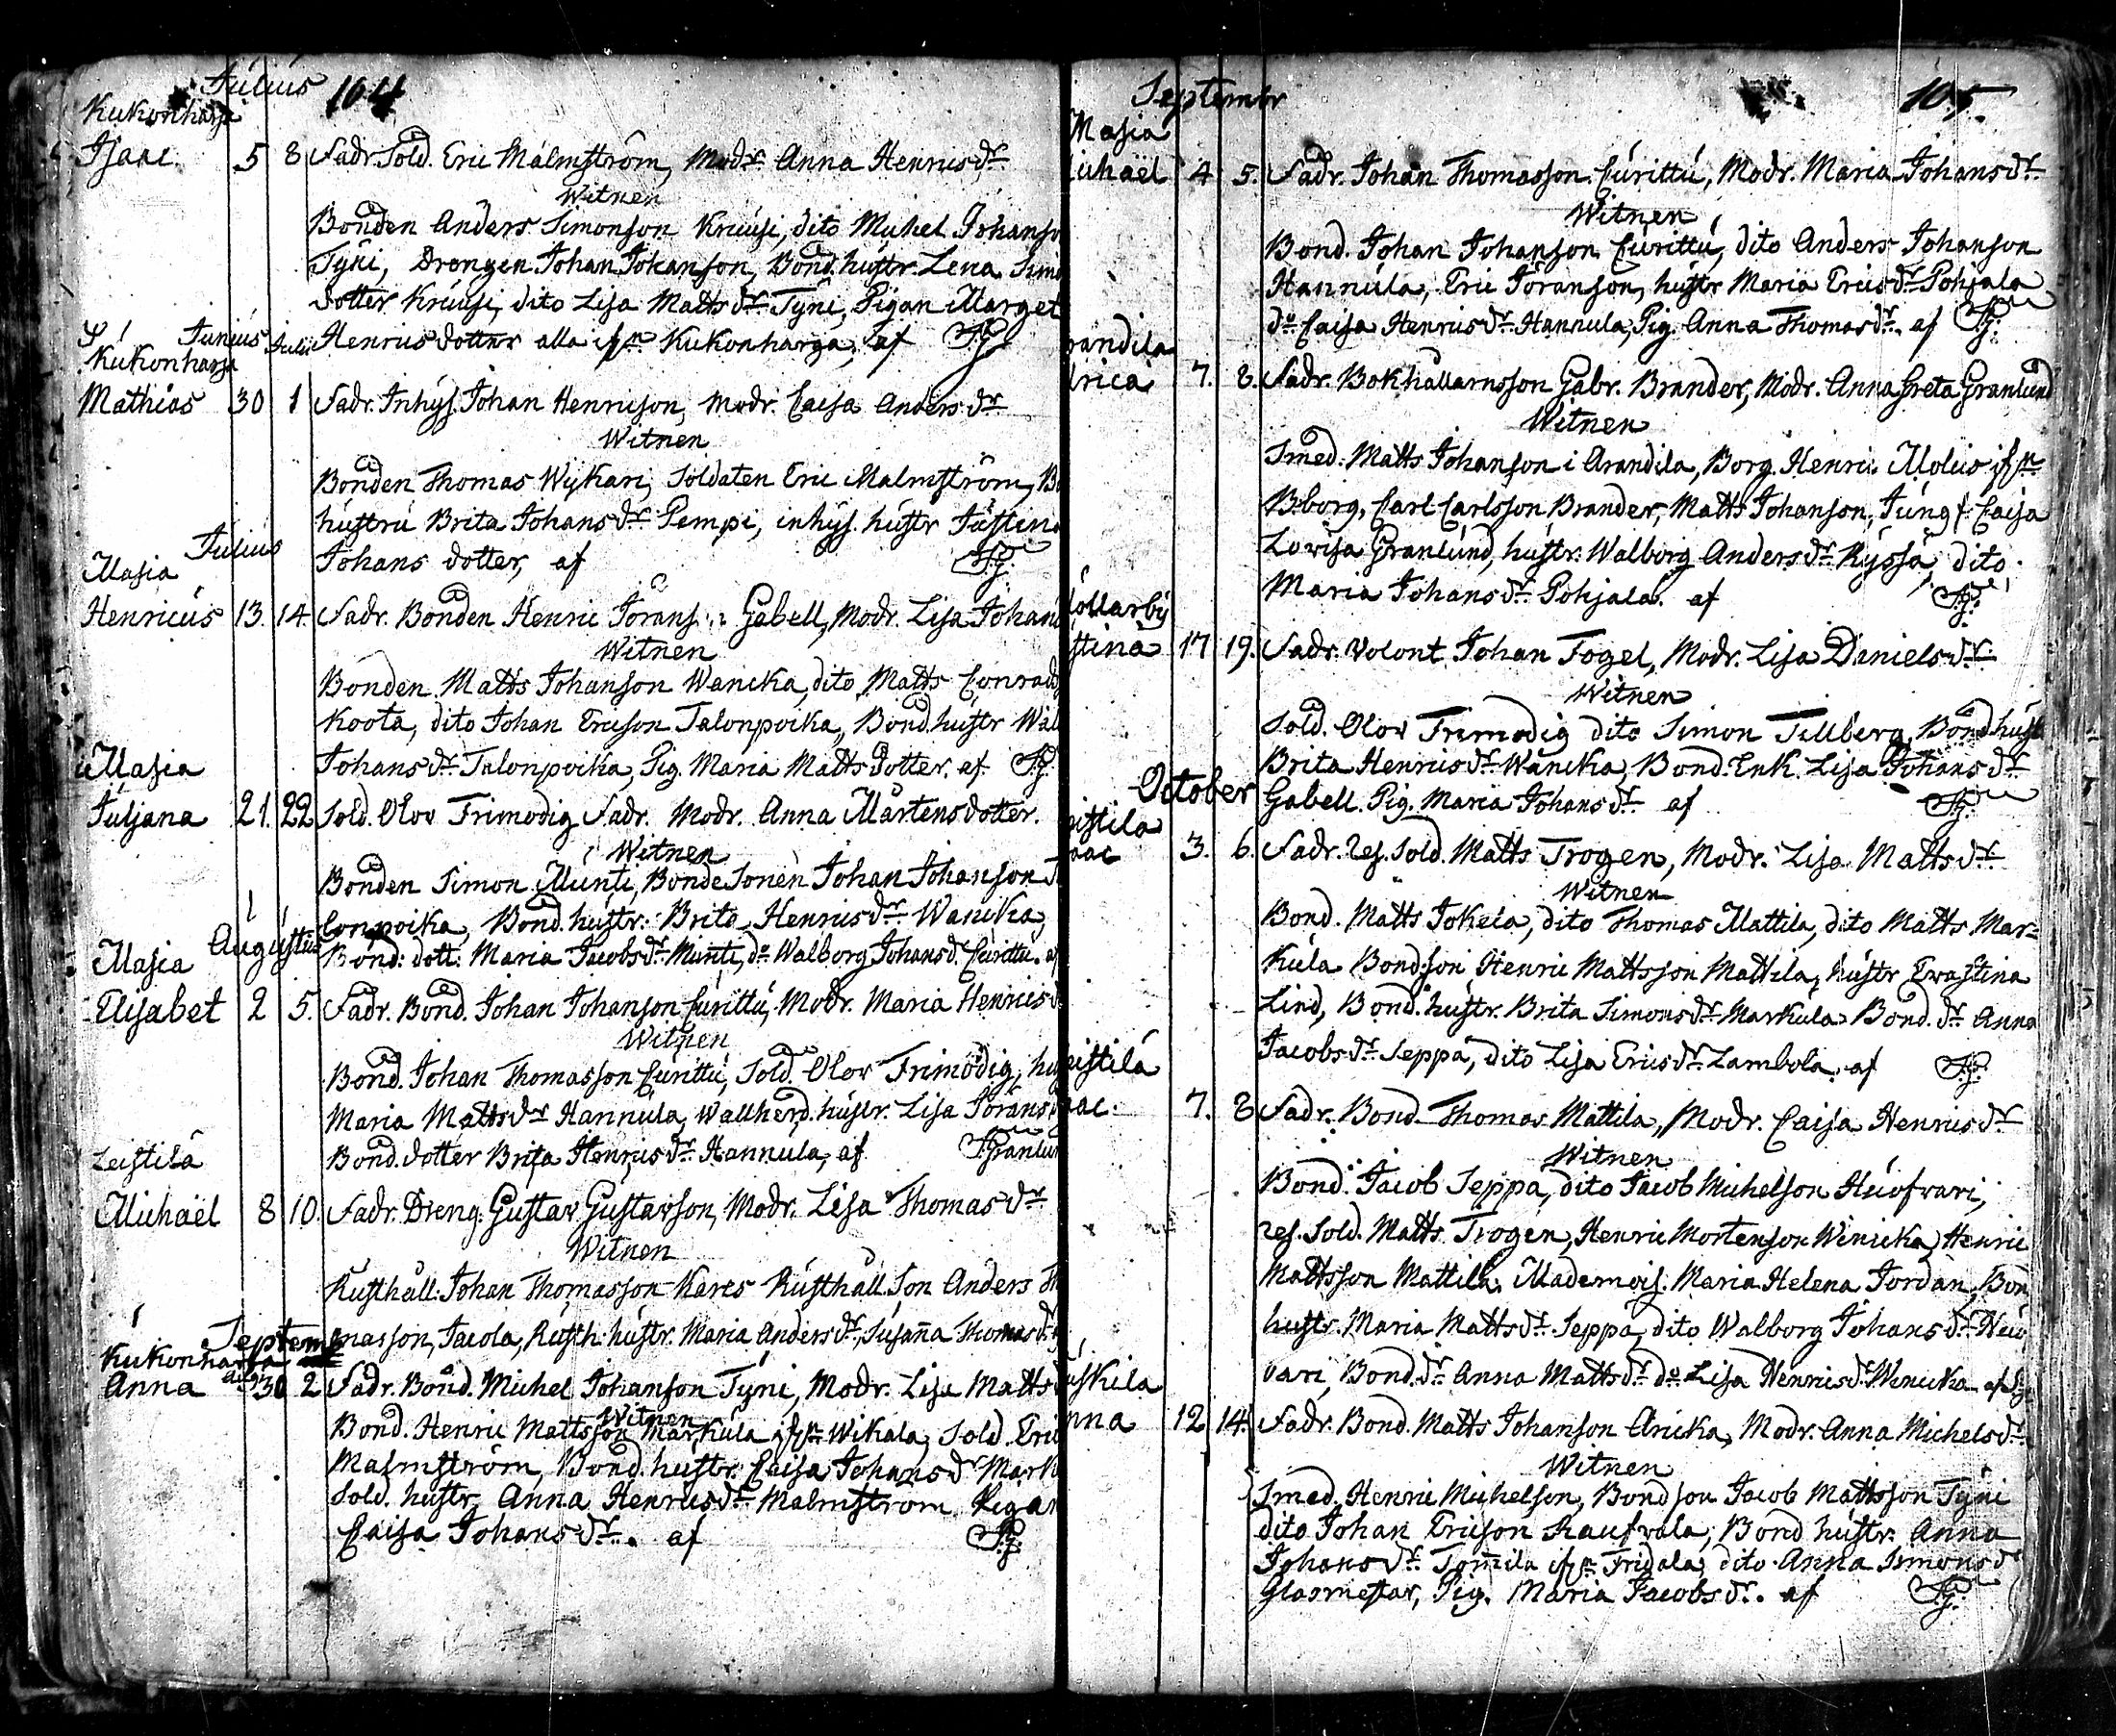 Julius 104
Kukonharja
Isaac 5 8 Fadr. Sold. Eric Malmström, Modr. Anna Henricsdr
Witnen
Bonden Anders Simonson Kruusi, dito Michel Johanso
Tyni, Drengen Johan Johanson, Bond. hustr. Lena Simo
dotter Kruusi, dito Lisa Mattsdr Tyni, Pigan Marget
Henricsdotter alla ifrn Kukonharja, af
Junius Julii
Kukonharja
Mathias 30 1 Fadr. Inhys. Johan Henricson, Modr. Caisa Andersdr
Witnen
Bonden Thomas Wykari, Soldaten Eric Malmström, Bo
hustru Brita Johansdr Pempi, inhys. hustr Justina
Johans dotter, af
Julius
Masia
Henricus 13. 14. Fadr. Bonden Henric Jörans. Gabell, Modr. Lisa Johans
Witnen
Bonden Matts Johanson Wancka, dito Matts Conrads
Koota, dito Johan Ericson Talonpoika, Bond. hustr Wal
Johansdr Talonpoika, Pig. Maria Matts dotter. af
Masia
Juljana 21. 22 Sold. Olov Frimodig Fadr. Modr. Anna Mårtensdotter.
Witnen
Bonden Simon Munti, Bonde Sonen Johan Johanson T
lonpoika, Bond. hustr. Brita Henricsdr Wancka,
Bond: dott: Maria Jacobsdr Munti, do Walborg Johansd. Curittu. af
Augustus
Masia
Elisabet 2 5. Fadr. Bond. Johan Johanson Curittu, Modr. Maria Henricsd
Witnen
Bond. Johan Thomasson Curittu, Sold. Olov Frimodig, hu
Maria Mattsdr Hannula, Wallherd. hustr. Lisa Jörans
Bond. dotter Brita Henricsdr Hannula, af Granlun
Leistilä
Michaël 8 10. Fadr. Dreng. Gustav Gustavson, Modr. Lisa Thomasdr
Witnen
Rusthåll: Johan Thomasson Kares Rusthåll. Son Anders Th
masson, Jacola, Rusth. hustr. Maria Andersdr, Susanna Thomasd
Septem
Kukonharja
Anna Aug. 30 2 Fadr. Bond. Michel Johanson Tyni, Modr. Lisa Mattsd
Witnen
Bond. Henric Mattsson Markula ifrn Wikala, Sold. Eric
Malmström, Bond. hustr. Caisa Johansdr Marku
Sold. hustr. Anna Henricsdr Malmström, Pigan
Caisa Johansdr. af
September 105.
Masia
ichaël 4 5. Fadr. Johan Thomasson Curittu, Modr. Maria Johansdr
Witnen
Bond. Johan Johanson Curittu, dito Anders Johanson
Hannula, Eric Jöranson, hustr Maria Ericsdr Pohjala
do Caisa Henricsdr Hannula, Pig. Anna Thomasdr. af
randila
lrica 7. 8. Fadr. Bokhållarnsson Gabr. Brander, Modr. Anna Greta Granlund
Witnen
Smed. Matts Johanson i Arandila, Borg. Henric Molcis ifrn
B:borg, Carl Carlsson Brander, Matts Johanson, Jungf. Caisa
Lovisa Granlund, hustr. Walborg Andersdr Ryssä, dito
Maria Johansdr Pohjala. af
öllarby
stina 17 19. Fadr. Volont. Johan Fogel, Modr. Lisa Danielsdr.
Witnen
Sold. Olov Frimodig dito Simon Tillberg, Bond hust
Brita Henricsdr Wancka, Bond. Enk. Lisa Johansdr
Gabell. Pig. Maria Johansdr af
October
eistilä
aac 3. 6. Fadr. Res. Sold. Matts Trogen, Modr. Lisa Mattsdr
Witnen
Bond. Matts Jokela, dito Thomas Mattila, dito Matts Mar=
kula Bondson Henric Mattsson Mattila, hustr Evastina
Lind, Bond. hustr. Brita Simonsdr Markula Bond. dr Anna
Jacobsdr Seppä, dito Lisa Ericsdr Lambola. af
eistilä
aac. 7. 8 Fadr. Bond Thomas Mattila, Modr. Caisa Henricsdr
Witnen
Bond. Jacob Seppä, dito Jacob Michelson
res. Sold. Matts Trogen, Henric Mortenson Winicka, Henric
Mattsson Mattila, Mademois. Maria Helena Jordan, Bon
hustr. Maria Mattsdr Seppä, dito Walborg Johansdr
vari, Bond.dr Anna Mattsdr do Lisa Henricsdr Winicka af
uskila
nna 12 14. Fadr. Bond. Matts Johanson Aricka, Modr. Anna Michelsdr
Witnen
Smed. Henric Michelson, Bondson Jacob Mattsson Tyni
dito Johan Ericson Raukvala, Bond hustr. Anna
Johansdr Tommila ifrn Fridala, dito Anna Simonsd
Glasmestar, Pig. Maria Jacobsdr. af